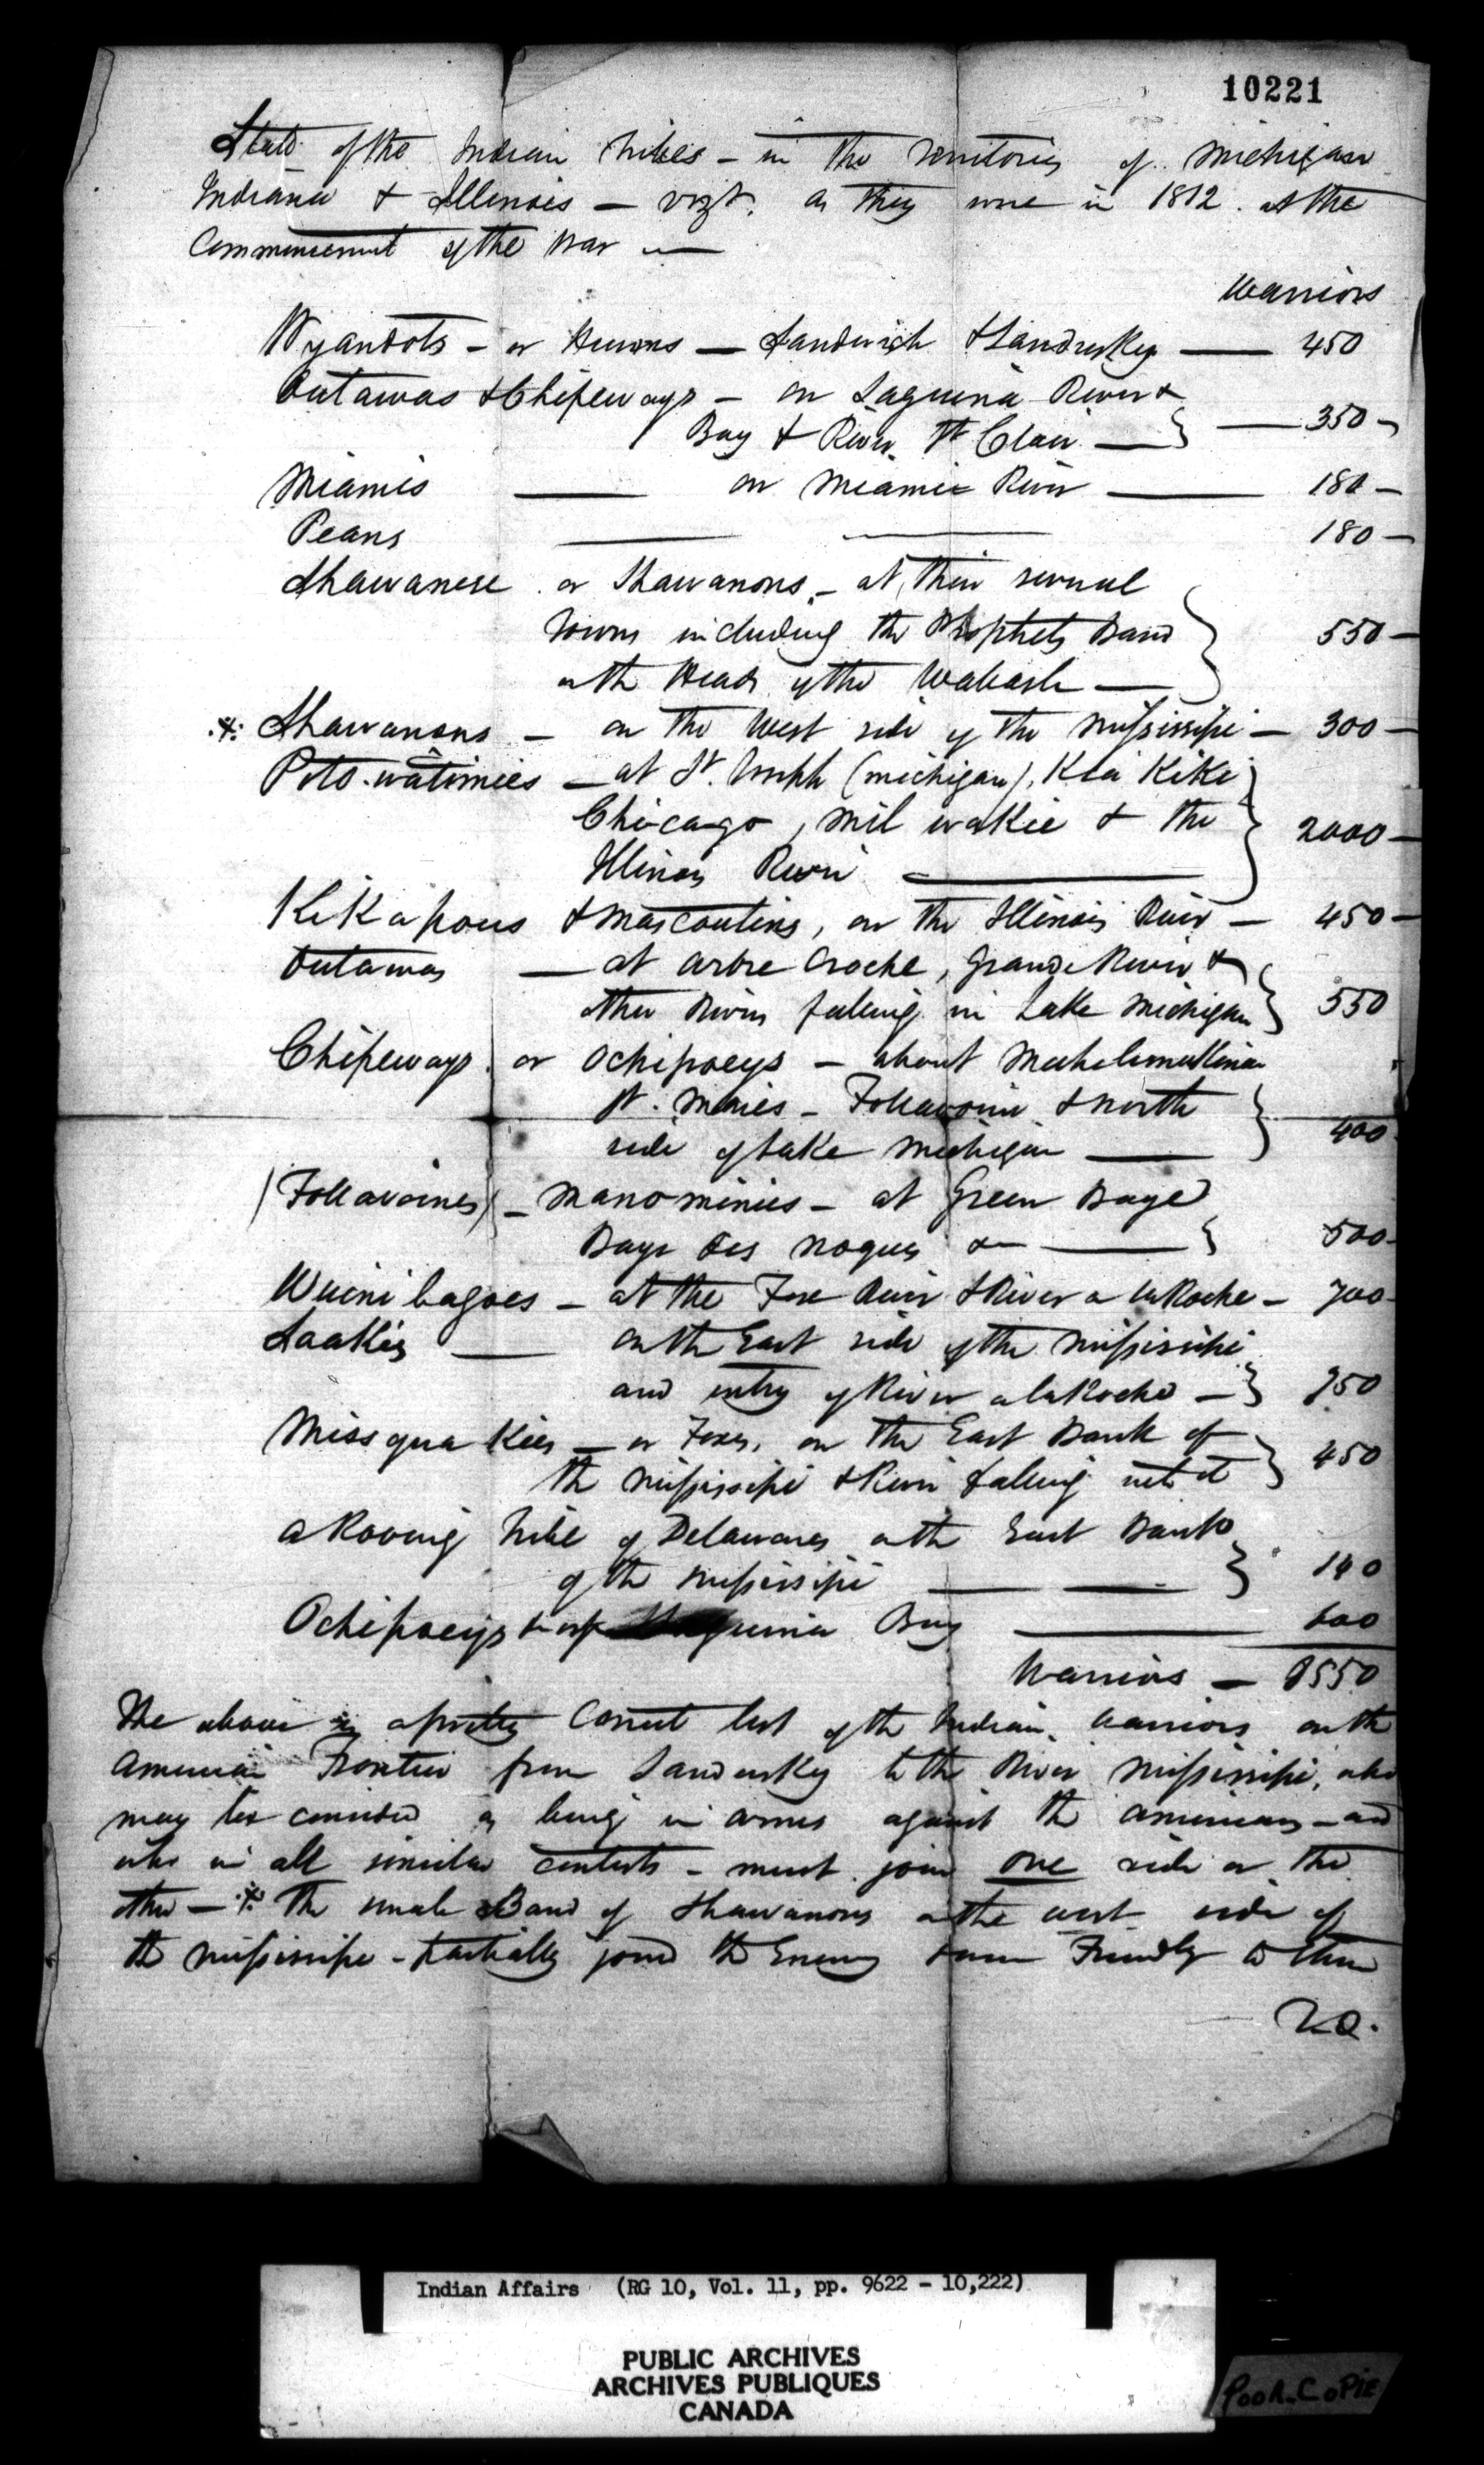 10221
State of the Indian Tribes - in the Territories of Michigan
Indiana & Illinois - vizt. as they were in 1812. at the
Commencement of the War -
Warriors
Wyandots - or Hurons - Sandwich & Sandusky - 450
Outawas & Chipeways - on Saguina River &
Bay & River St Clair - 350 -
Miamis - on Miamie River - 180 -
Peans - 180 -
Shawanese or Shawanons - at their several
Towns including the Prophets Band
on the Heads of the Wabash - 550 -
* Shawanons - on the West side of the Missisipi - 300 -
Poto-watimies - at St. Joseph (Michigan), Kia Kiki
Chicago, Mil wakie & the
Illinois River - 2000 -
KiKapous & Mascoutins, on the Illinois River - 450 -
Outawas - at Arbre Croche, Grande River &
other Rivers falling in Lake Michigan 550
Chipeways or Ochipoeys - about
St. Maries - Follavoine & North
side of Lake Michigan - 400
(Follavoines) - Manominies - at Green Baye
Baye des Noques & - 500 -
Wuinibagoes - at the Fox River & River a la Roche - 700 -
Saakies - on the East side of the Missisipi
and entry of River a la Roche - 750
Missqua Kies - or Foxes, on the East Bank of
the Missisipi & River falling into it 450
a Roving Tribe of Delawares on the East Bank
of the Missisipi - 140
Ochipoeys Bay - 600
Warriors - 8550
The above is a pretty Correct list of the Indian Warriors on the
American Frontier from Sandusky to the River Missisipi, who
may be considered as being in arms against the Americans - and
who in all similar contests - must join one side or the
other - * The small Band of Shawanons on the west side of
the Missisipi - partially joined the Enemy Friendly to them
Indian Affairs (RG 10, Vol. 11, pp. 9622 - 10,222)
PUBLIC ARCHIVES
ARCHIVES PUBLIQUES
CANADA
POOR COPIE